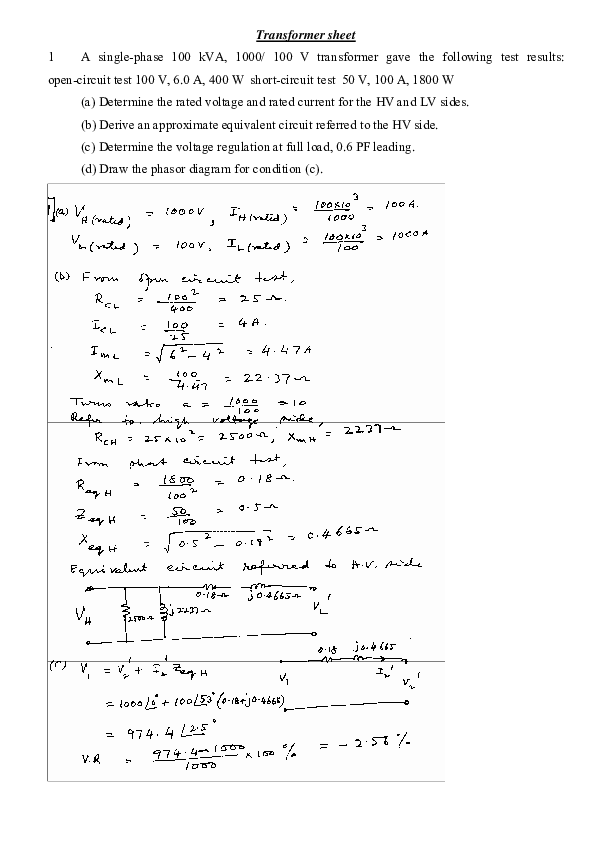 Transformer sheet
1 A single-phase 100 kVA, 1000/ 100 V transformer gave the following test results:
open-circuit test 100 V, 6.0 A, 400 W short-circuit test 50 V, 100 A, 1800 W
(a) Determine the rated voltage and rated current for the HV and LV sides.
(b) Derive an approximate equivalent circuit referred to the HV side.
(c) Determine the voltage regulation at full load, 0.6 PF leading.
(d) Draw the phasor diagram for condition (c).
1] (a) V_H(rated) = 1000V, I_H(rated) = 100×10³/1000 = 100 A.
V_L(rated) = 100V, I_L(rated) = 100×10³/100 = 1000 A
(b) From open circuit test,
R_CL = 100²/400 = 25 Ω.
I_CL = 100/25 = 4 A.
I_mL = √(6² - 4²) = 4.47 A
X_mL = 100/4.47 = 22.37 Ω
Turns ratio a = 1000/100 = 10
Refer to high voltage side,
R_CH = 25×10² = 2500 Ω, X_mH = 2237 Ω
From short circuit test,
R_eqH = 1800/100² = 0.18 Ω.
Z_eqH = 50/100 = 0.5 Ω
X_eqH = √(0.5² - 0.18²) = 0.4665 Ω
Equivalent circuit referred to H.V. side
0.18 Ω j0.4665 Ω
V_H 2500 Ω j2237 Ω V_L'
0.18 j0.4665
V₁ I₂' V₂'
(c) V₁ = V₂' + I₂' Z_eqH
= 1000∠0° + 100∠53° (0.18+j0.4665)
= 974.4∠2.5°
V.R = (974.4 - 1000)/1000 × 100 % = -2.56 %